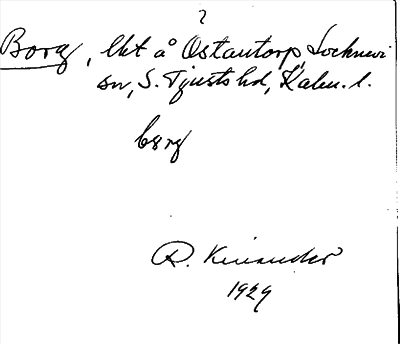 ?
Borg, lht å Östantorp, Locknevi
sn, S. Tjusts hd, Kalm. l.
bórg
R. Kinander
1929